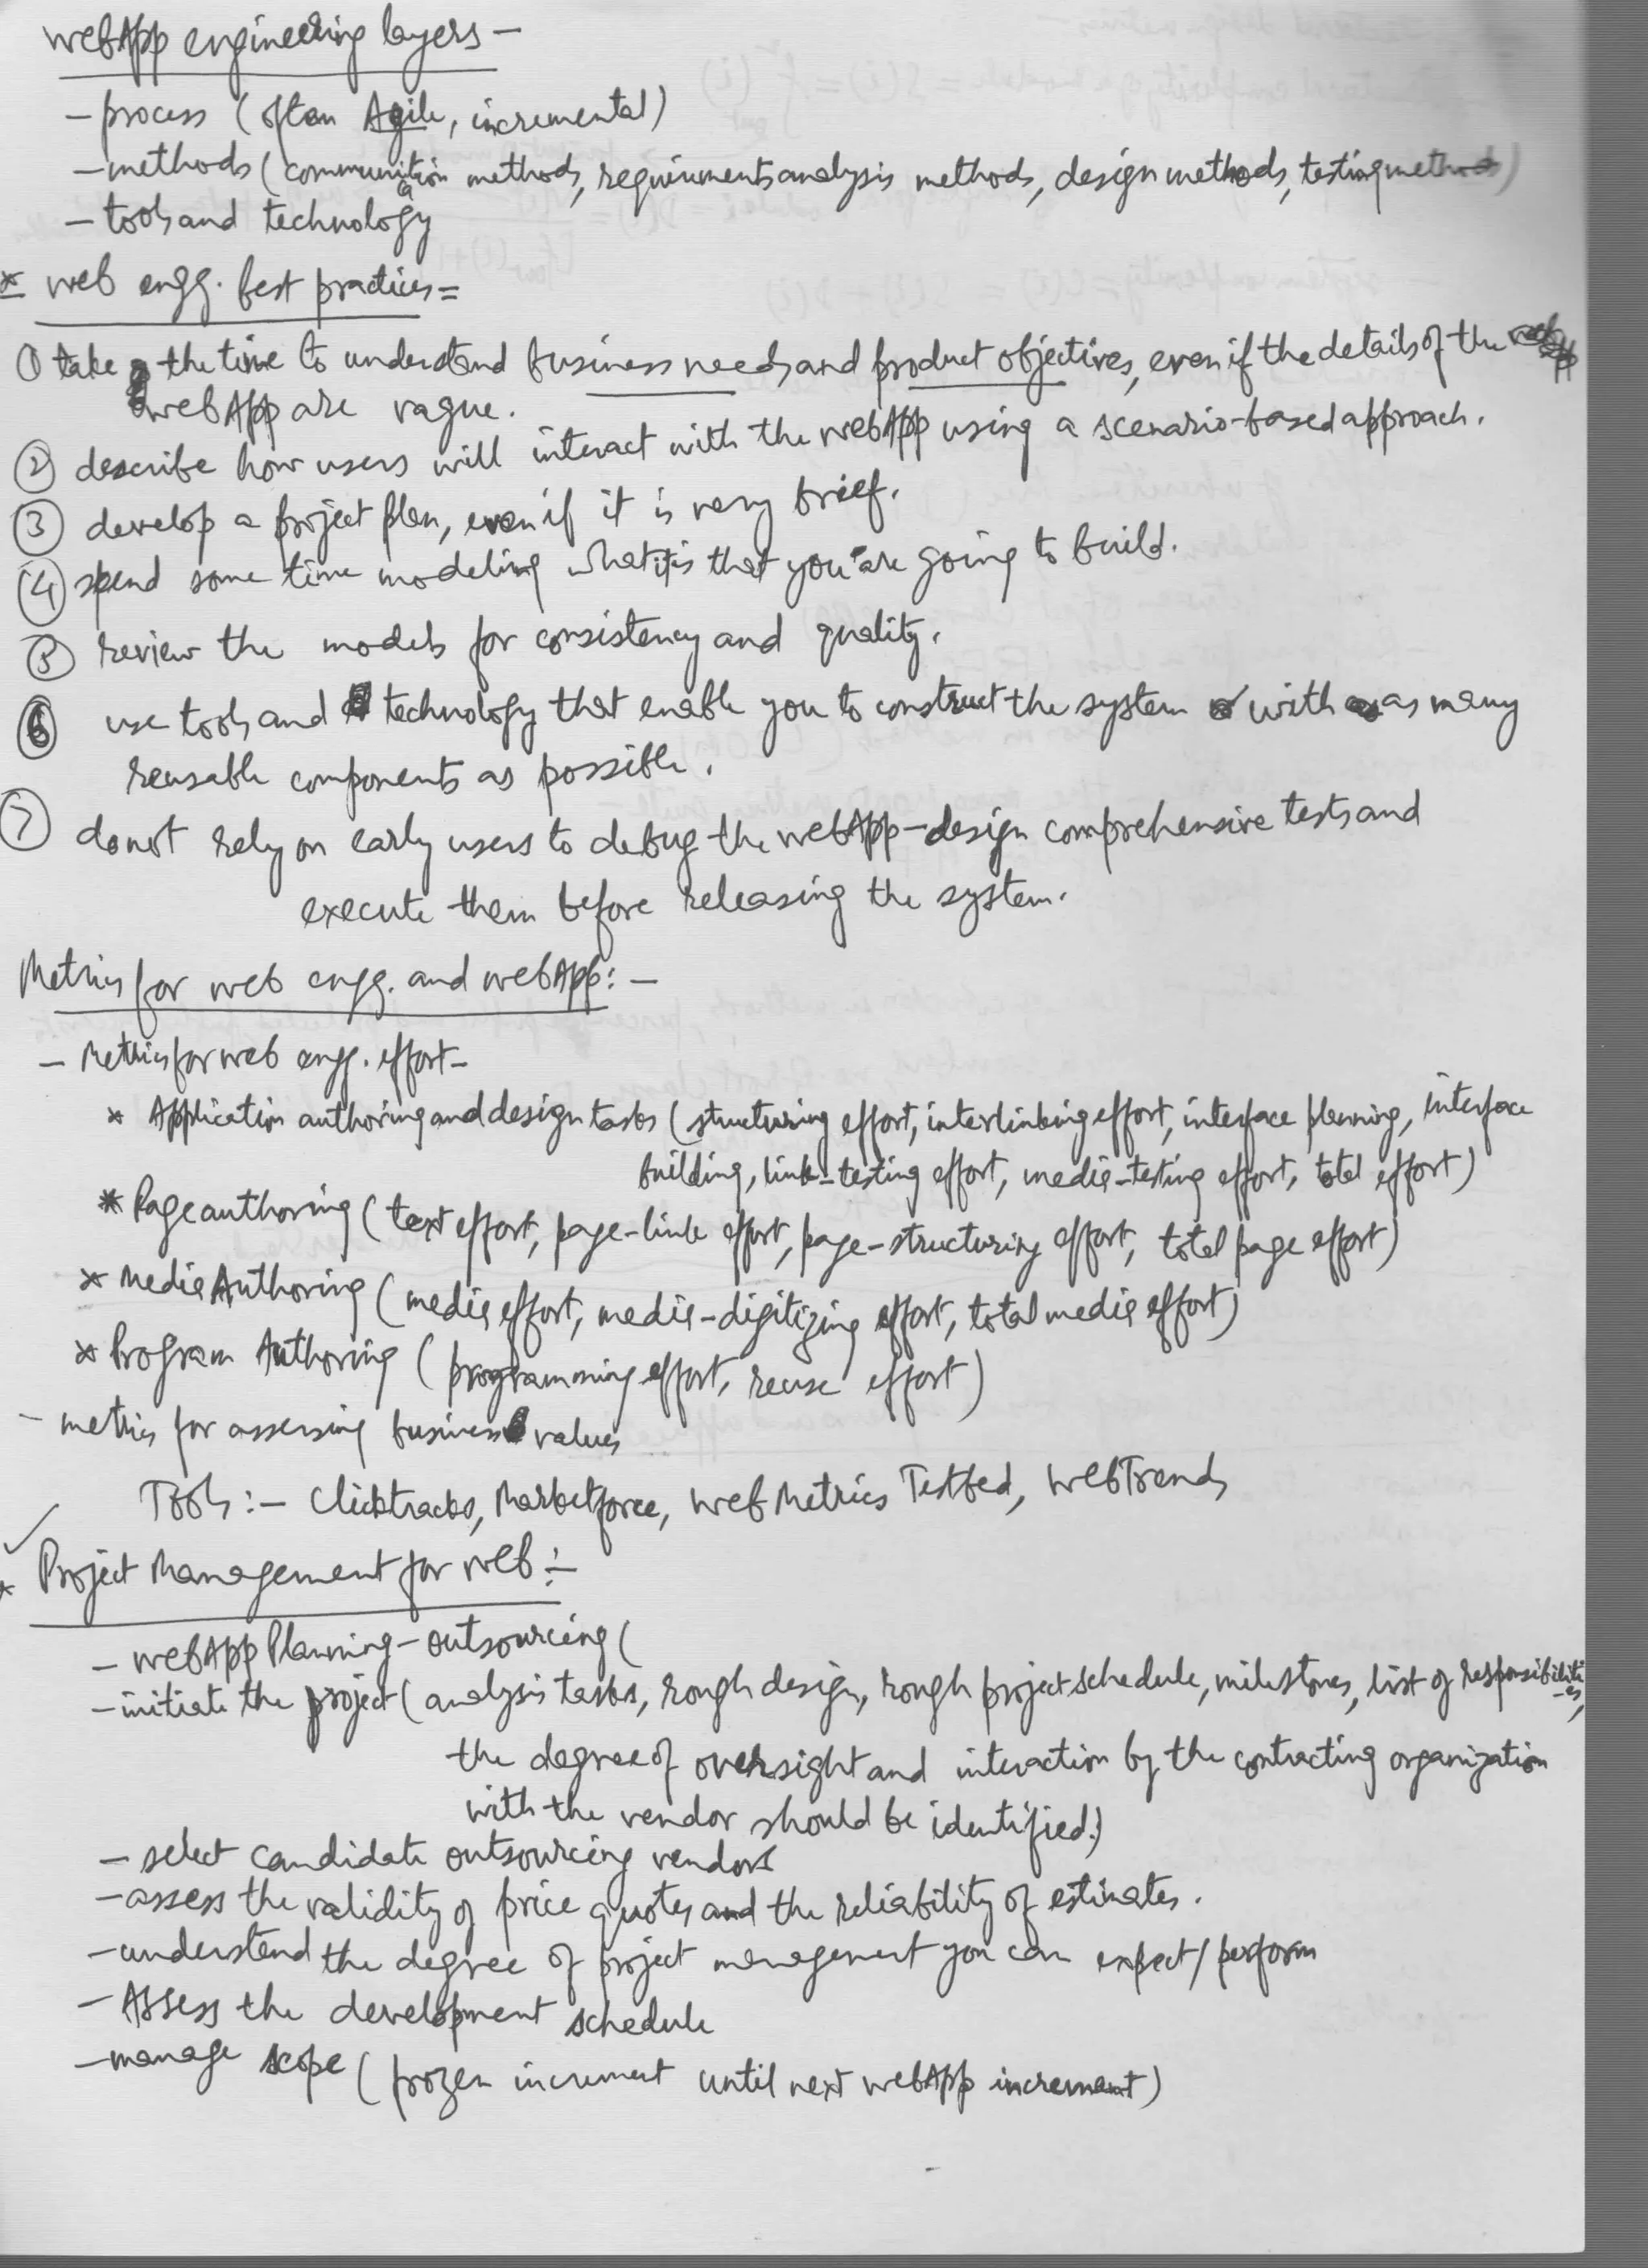 WebApp engineering layers -
- process (often Agile, incremental)
- methods (communication methods, requirements analysis methods, design methods, testing methods)
- tools and technology
* web engg. best practices =
① take the time to understand business needs and product objectives, even if the details of the
webApp are vague.
② describe how users will interact with the webApp using a scenario-based approach.
③ develop a project plan, even if it is very brief.
④ spend some time modeling what it is that you are going to build.
⑤ review the models for consistency and quality.
⑥ use tools and technology that enable you to construct the system with as many
reusable components as possible.
⑦ do not rely on early users to debug the webApp - design comprehensive tests and
execute them before releasing the system.
Metrics for web engg. and webApp: -
- Metrics for web engg. effort -
* Application authoring and design tasks (structuring effort, interlinking effort, interface planning, interface
building, link-testing effort, media-testing effort, total effort)
* Page authoring (text effort, page-link effort, page-structuring effort, total page effort)
* Media Authoring (media effort, media-digitizing effort, total media effort)
* Program Authoring (programming effort, reuse effort)
- metrics for assessing business values
Tools :- Clicktracks, Marketforce, Web Metrics Testbed, WebTrends
* Project Management for web :-
- webApp Planning - outsourcing (
- initiate the project (analysis tasks, rough design, rough project schedule, milestones, list of responsibiliti
-es,
the degree of oversight and interaction by the contracting organization
with the vendor should be identified.)
- select candidate outsourcing vendors
- assess the validity of price quotes and the reliability of estimates.
- understand the degree of project management you can expect/perform
- Assess the development schedule
- manage scope (frozen increment until next webApp increment)